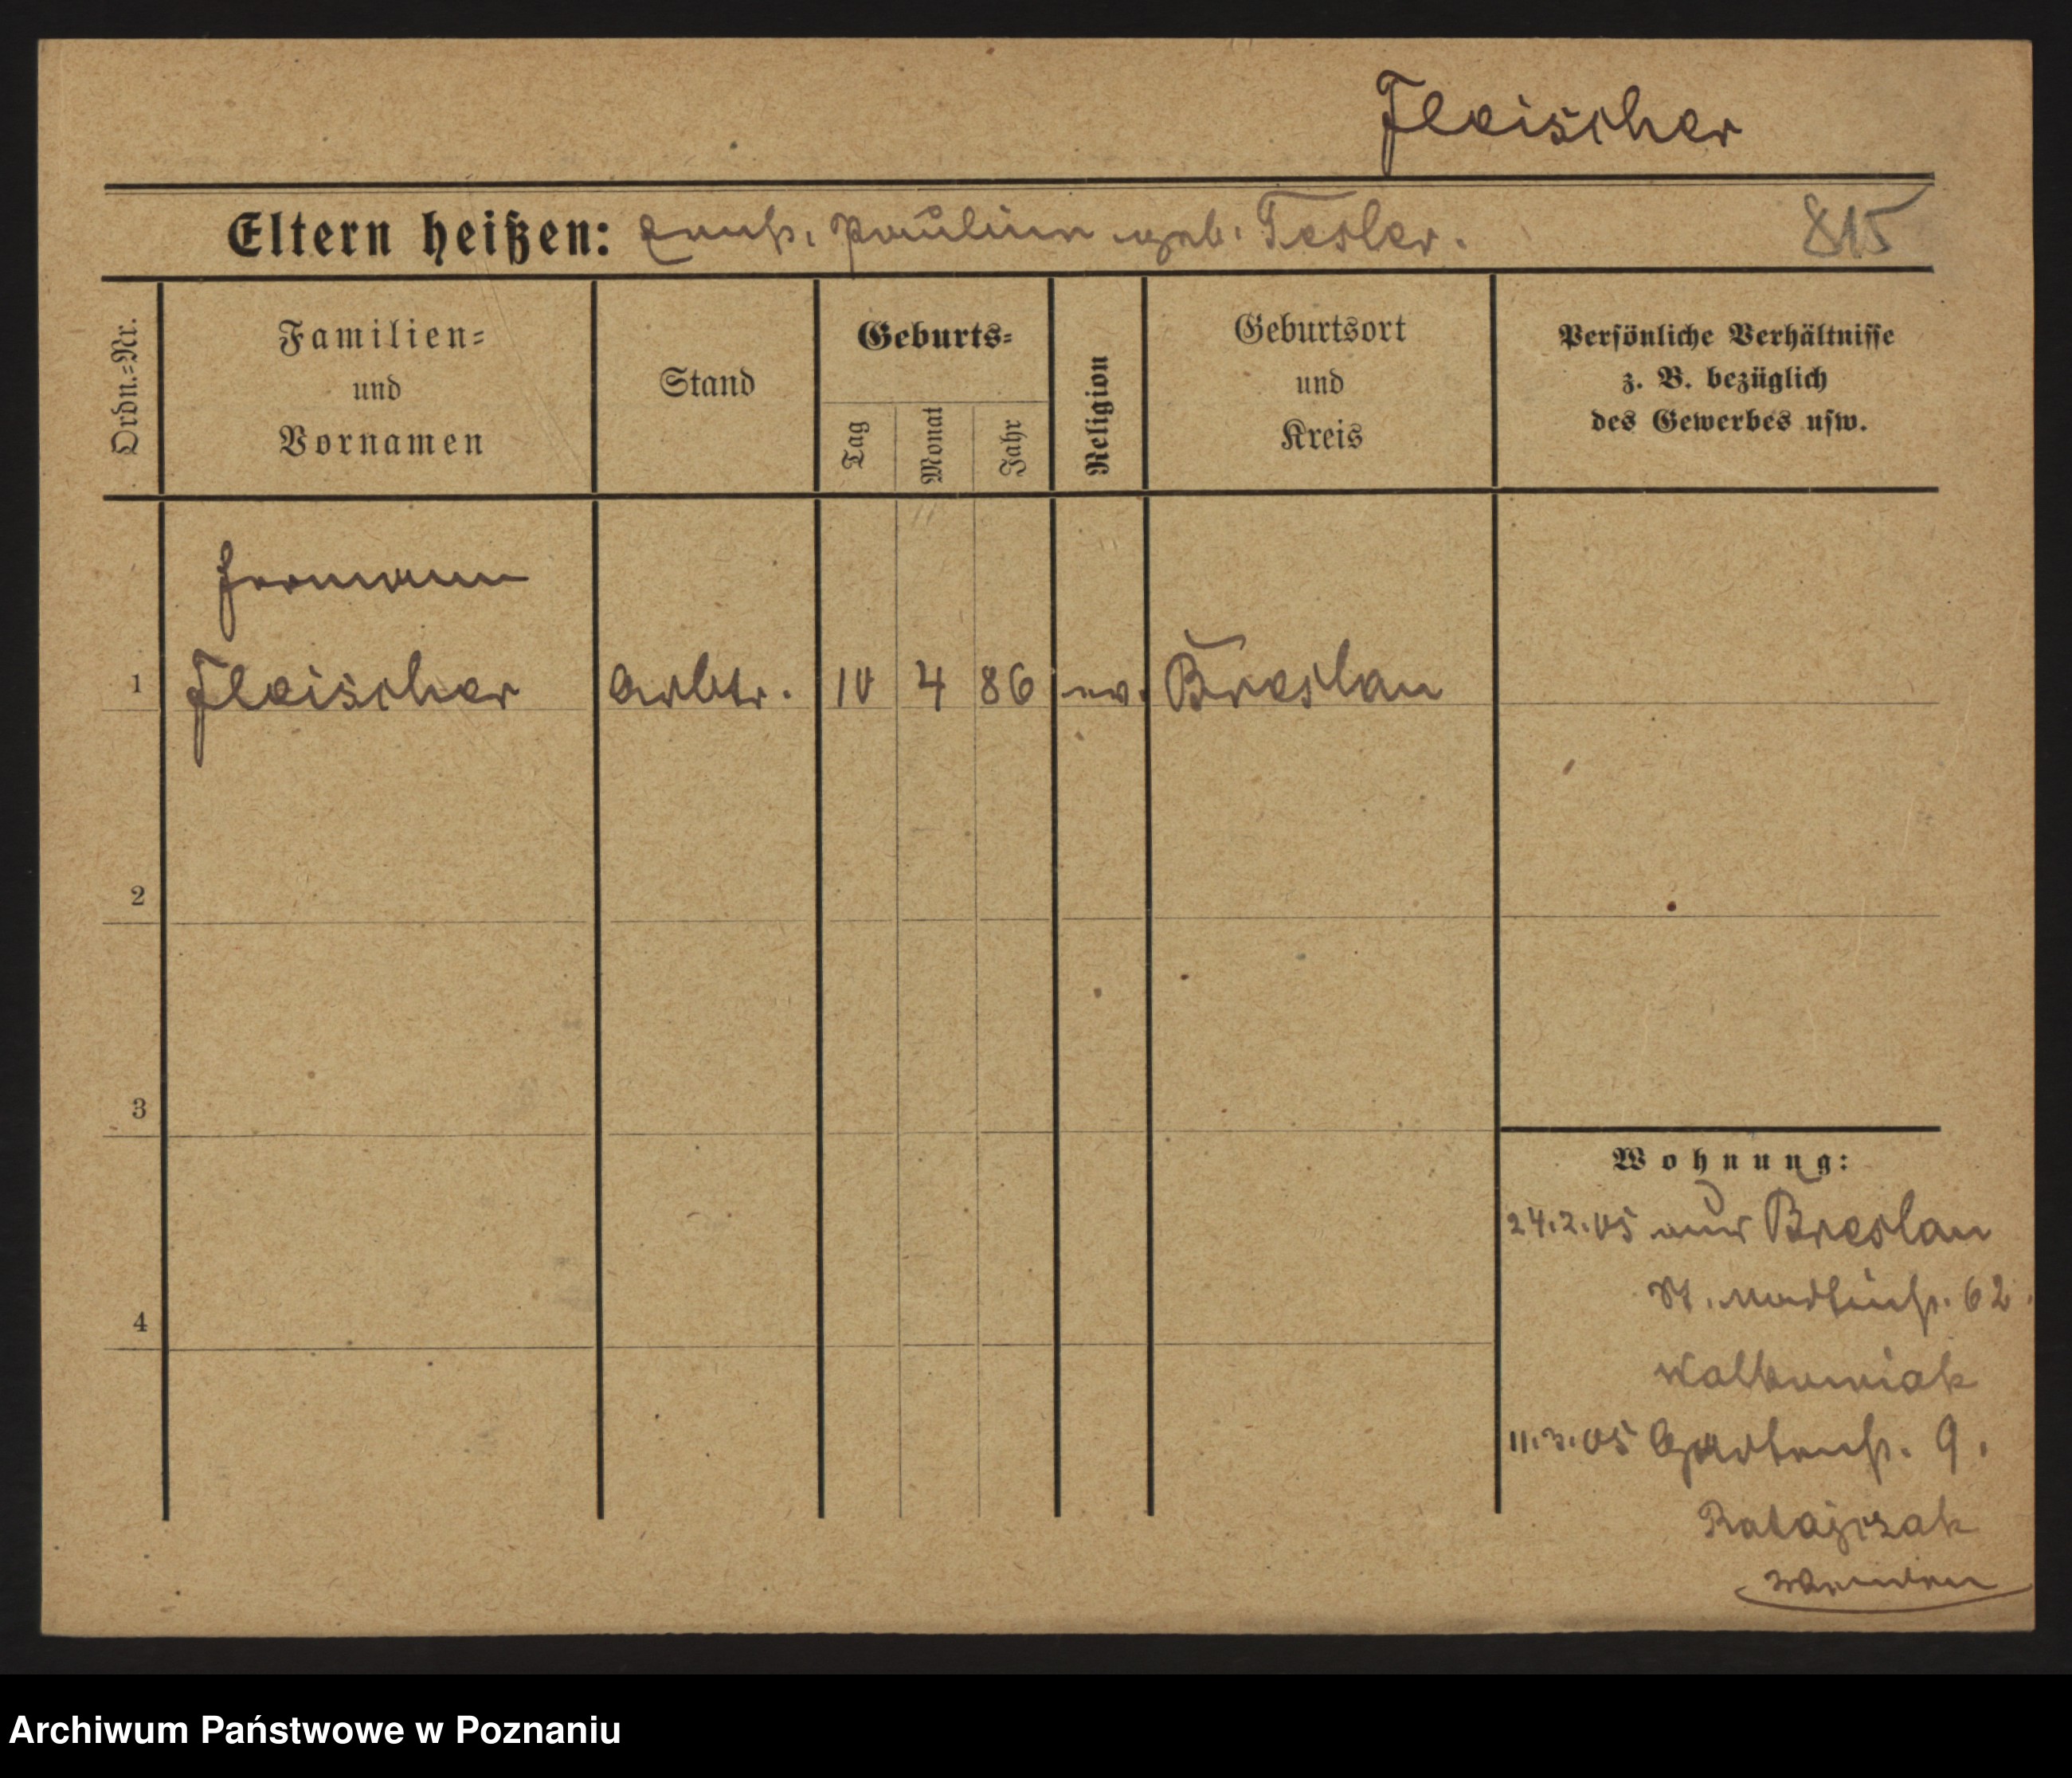 Fleischer
Eltern heißen: Ernst. Pauline geb. Tesler. 815
Ordn.=Nr.
Familien=
und
Vornamen
Stand
Geburts=
Tag
Monat
Jahr
Religion
Geburtsort
und
Kreis
Persönliche Verhältnisse
z. B. bezüglich
des Gewerbes usw.
Hermann
1 Fleischer Arbtr. 10 4 86 ev. Breslau
2
3
4
Wohnung:
24.2.05 aus Breslau
St. Martinstr. 62.
Walkowiak
11.3.05 Gartenstr. 9.
Ratajczak
Archiwum Państwowe w Poznaniu